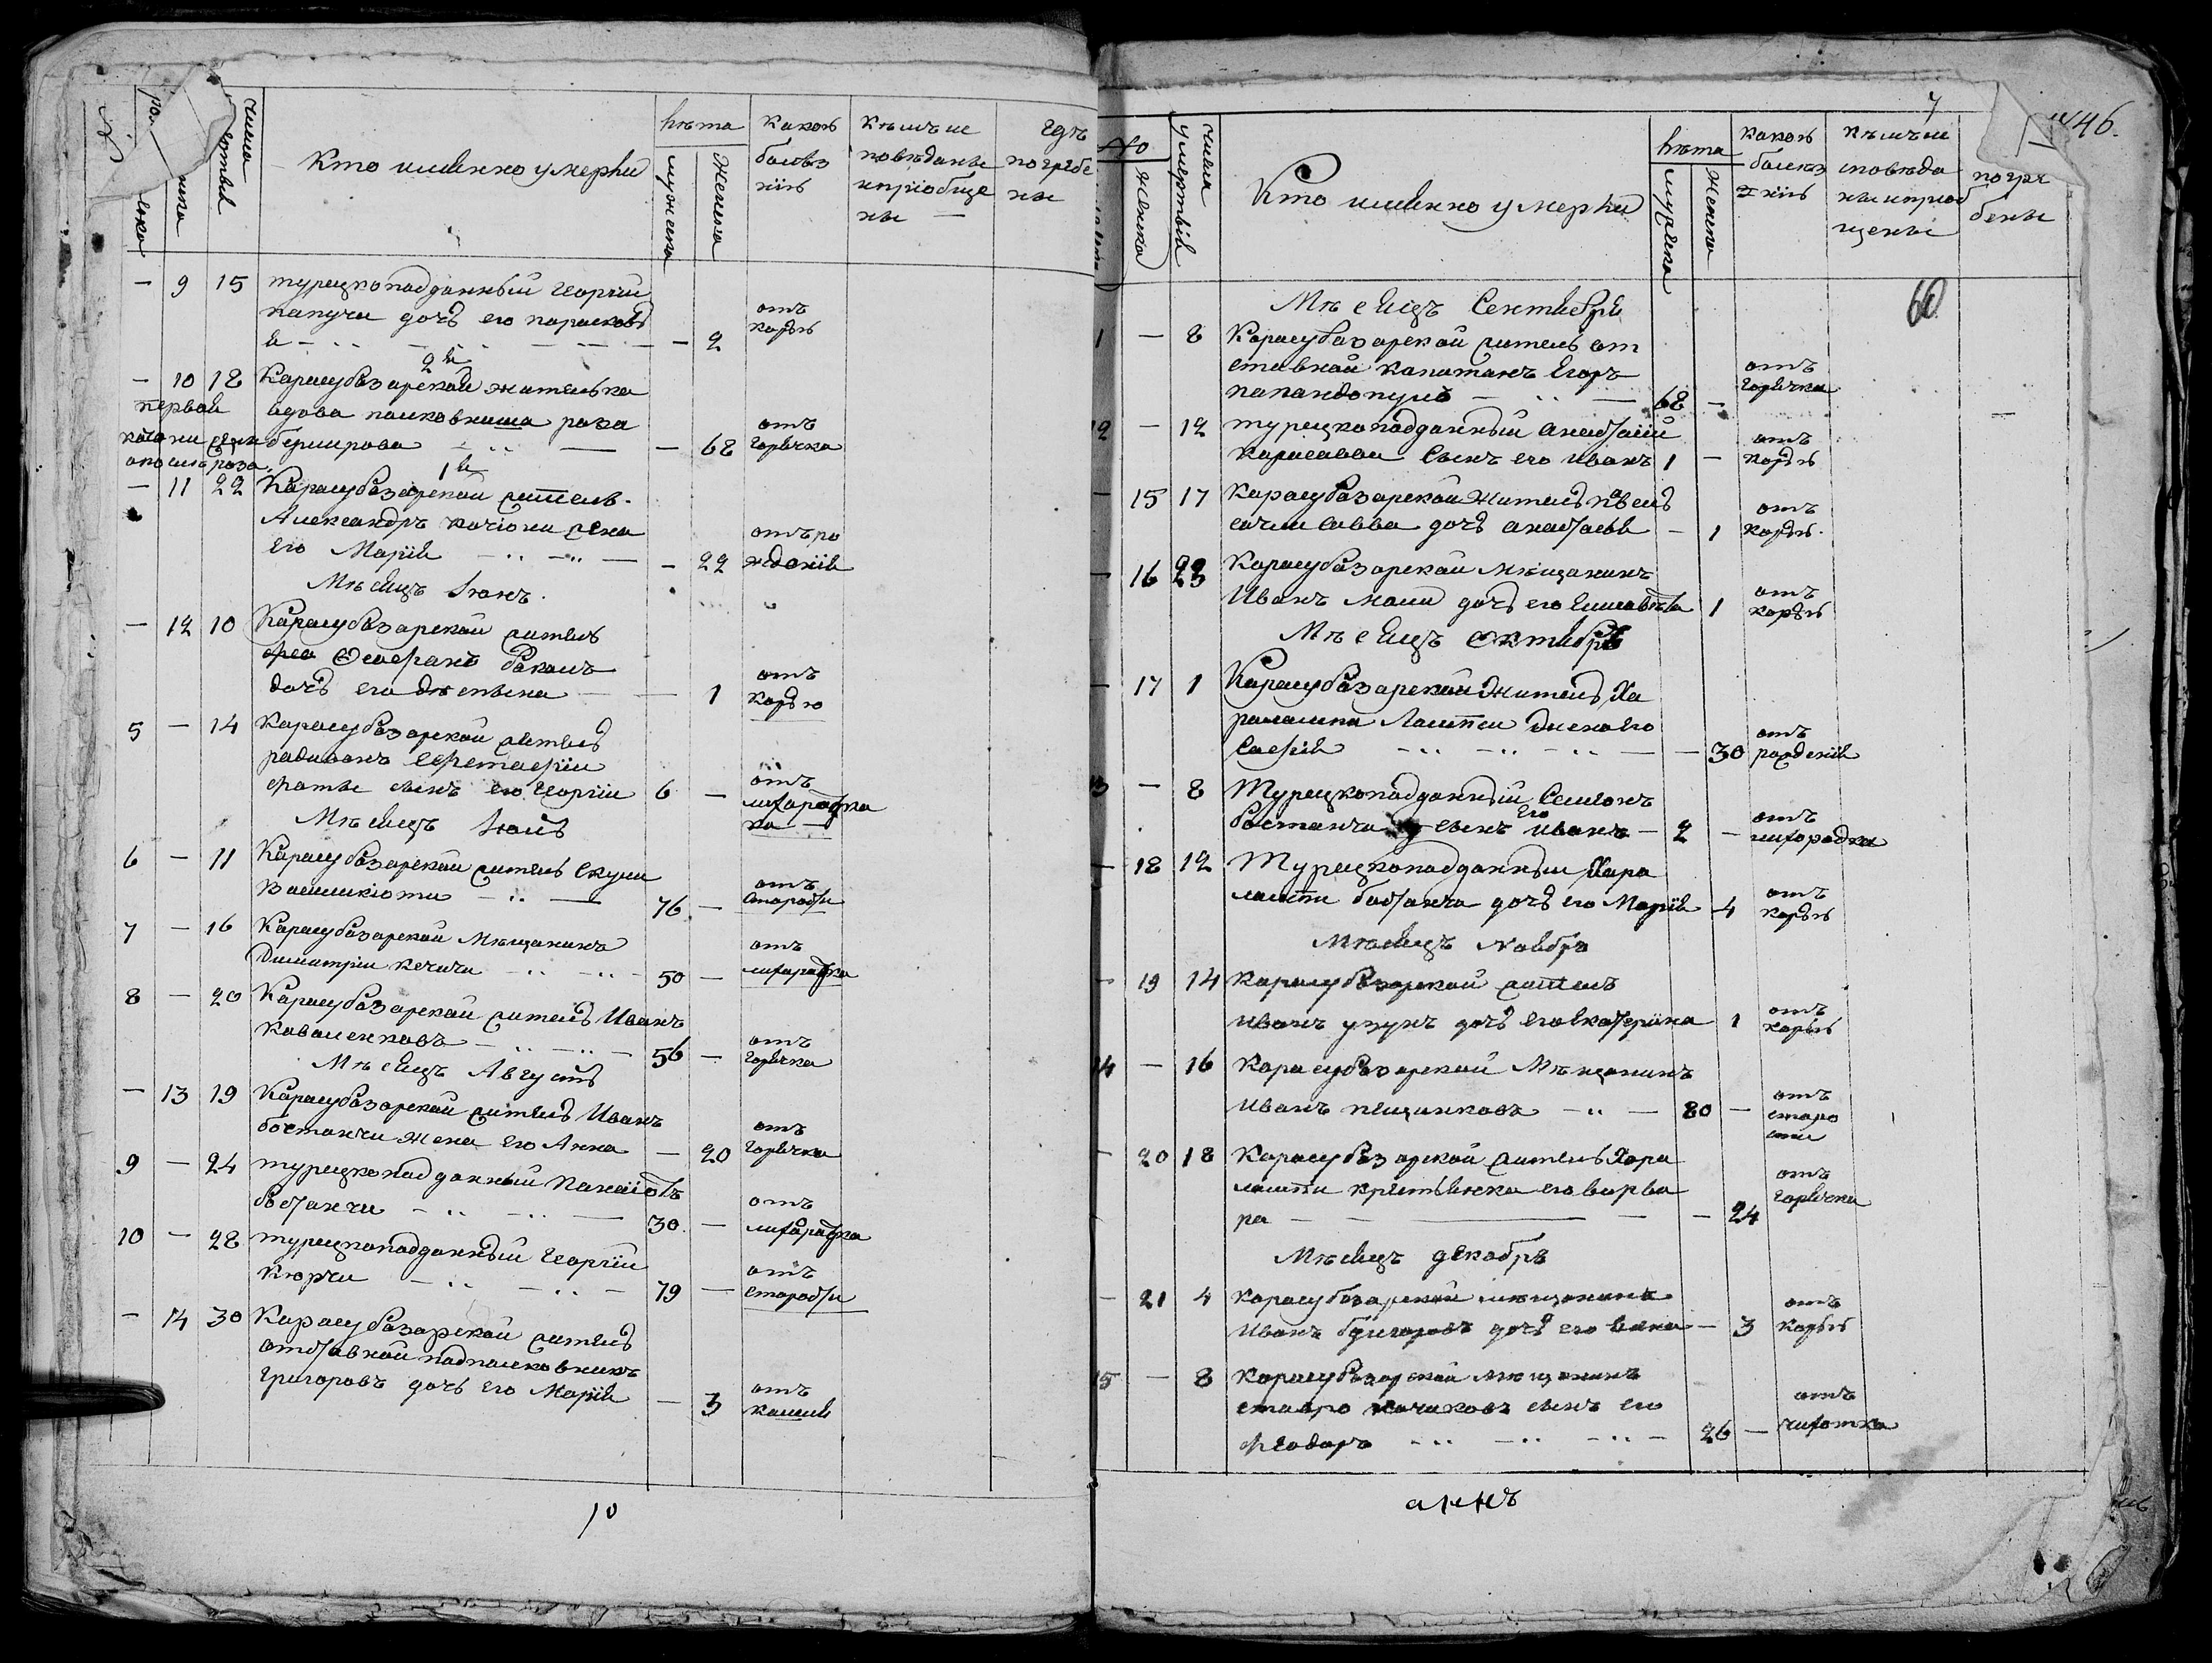 числа
Кто именно умерли
лѣта
мужеска
женска
какою
болѣз
нію
Кѣмъ ис
повѣданы
и пріобще
ны —
гдѣ
погребе
ны
— 9 15 турецкоподданный Георгіи
капучи дочь его парасковь
я — — 2 отъ корью
— 10 18 Карасубазарской жителька
вдова полковница роза
— 68 отъ горячка
первой
— 11 22 Карасубазарской житель
Александръ качіони жена
его Марія — 22 отъ ро
жденія
Мѣсяцъ Іюнъ
— 12 10 Карасубазарской житель
дочь его — 1 отъ корью
5 — 14 Карасубазарской житель
радивонъ
сынъ его Георгіи 6 — отъ
Мѣсяцъ Іюль
6 — 11 Карасубазарской житель
76 — отъ старости
7 — 16 Карасубазарской Мѣщанинъ
Димитріи кечичи 50 — отъ лихорадка
8 — 20 Карасубазарской житель Иванъ
коваленковъ — 56 — отъ горячка
Мѣсяцъ Августъ
— 13 19 Карасубазарской житель Иванъ
бостанчи жена его Анна — 20 отъ горячка
9 — 24 турецкоподданный Панаіотъ
бостанчи — 30 — отъ лихорадка
10 — 28 турецкоподданный Георгіи
Кюрчи — 79 — отъ старости
— 14 30 Карасубазарской житель
отставной подполковникъ
Григоровъ дочь его Марія — 3 отъ кашля
10
7
446.
No
женска
числа
умертвія
Кто именно умерли
лѣта
мужеска
женска
какою
болѣз
нію
Кѣмъ и
сповѣда
ны и приоб
щены
погре
бены
60
Мѣсяцъ Сентябрь
— 8 Карасубазарской житель от
ставной капитанъ Егоръ
папандопуло — 68 — отъ горячка
12 — 12 турецкоподданный анастасіи
карасавва сынъ его иванъ 1 — отъ корью
— 15 17 Карасубазарской житель павелъ
савва дочь анастасія — 1 отъ корью
— 16 23 Карасубазарской Мѣщанинъ
Иванъ дочь его Елисавѣта 1 отъ корью
Мѣсяцъ октябрь
— 17 1 Карасубазарской житель Ха
ралампи жена его
Софія — 30 отъ рожденія
13 — 8 Турецкоподданный Семіонъ
бостанчи сынъ его иванъ — 2 — отъ лихорадка
— 18 12 Турецкоподданныи Хара
лампи бостанчи дочь его Марія 4 отъ корью
Мѣсяцъ Ноябрь
— 19 14 карасубазарской житель
иванъ узунъ дочь его Екатерина 1 отъ корью
14 — 16 Карасубазарской Мѣщанинъ
иванъ пещанковъ — 80 — отъ
старо
сти
— 20 18 Карасубазарской житель Хара
лампи крестьянка его варва
ра — 24 отъ горячка
Мѣсяцъ декабрь
— 21 4 карасубазарской мѣщанинъ
Иванъ дочь его — 3 отъ корью
15 — 8 карасубазарской мѣщанинъ
ставро сынъ его
феодоръ — 26 — отъ чихотка